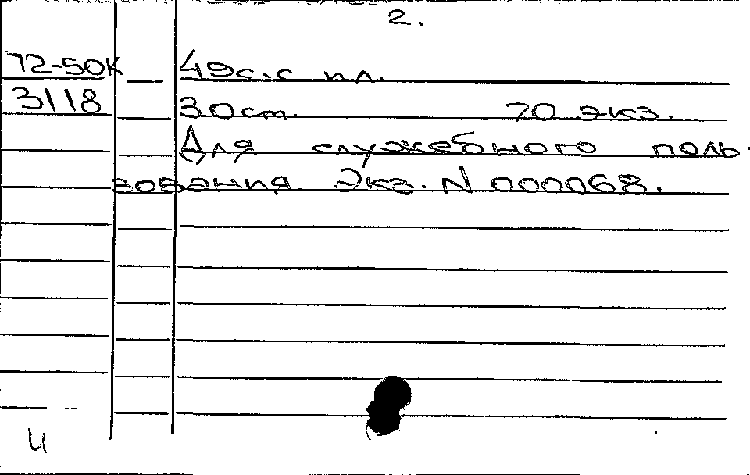 2.
72-50К 49с.с пл.
3118 30см. 70 экз.
Для служебного поль-
зования Экз. N 000068.
И